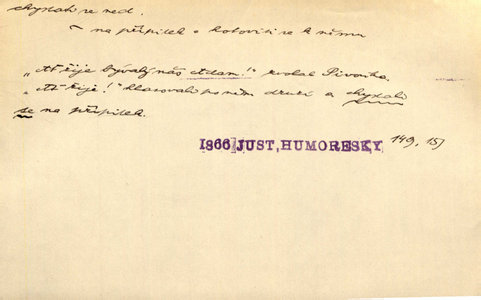 chystati se ned.
~ na přípitek = hotoviti se k němu
„Ať žije bývalý náš Adam!“ zvolal Pivoňka.
„Ať žije!“ hlasovali po něm druzí a chystali
se na přípitek.
1866 JUST, HUMORESKY 149, 151